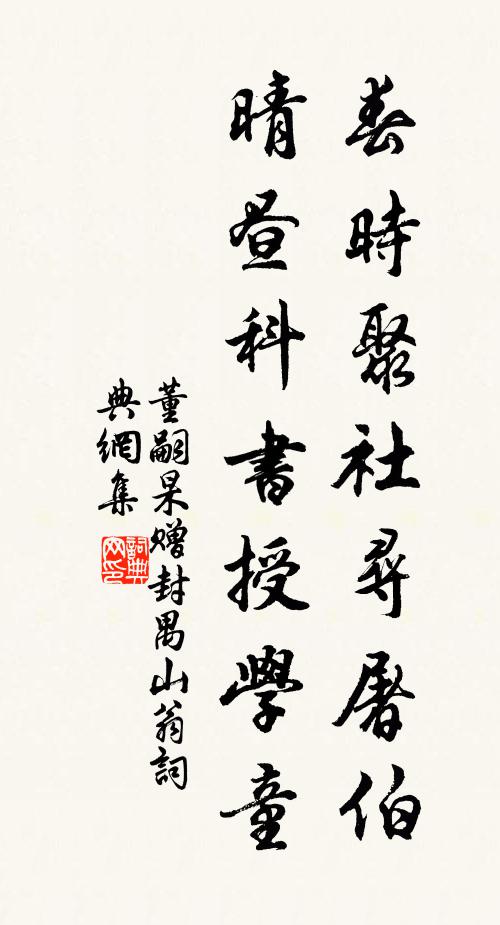 春時聚社尋屠伯
晴晝科書授學童
董嗣杲贈封禺山翁詞
典網集
詞典网印